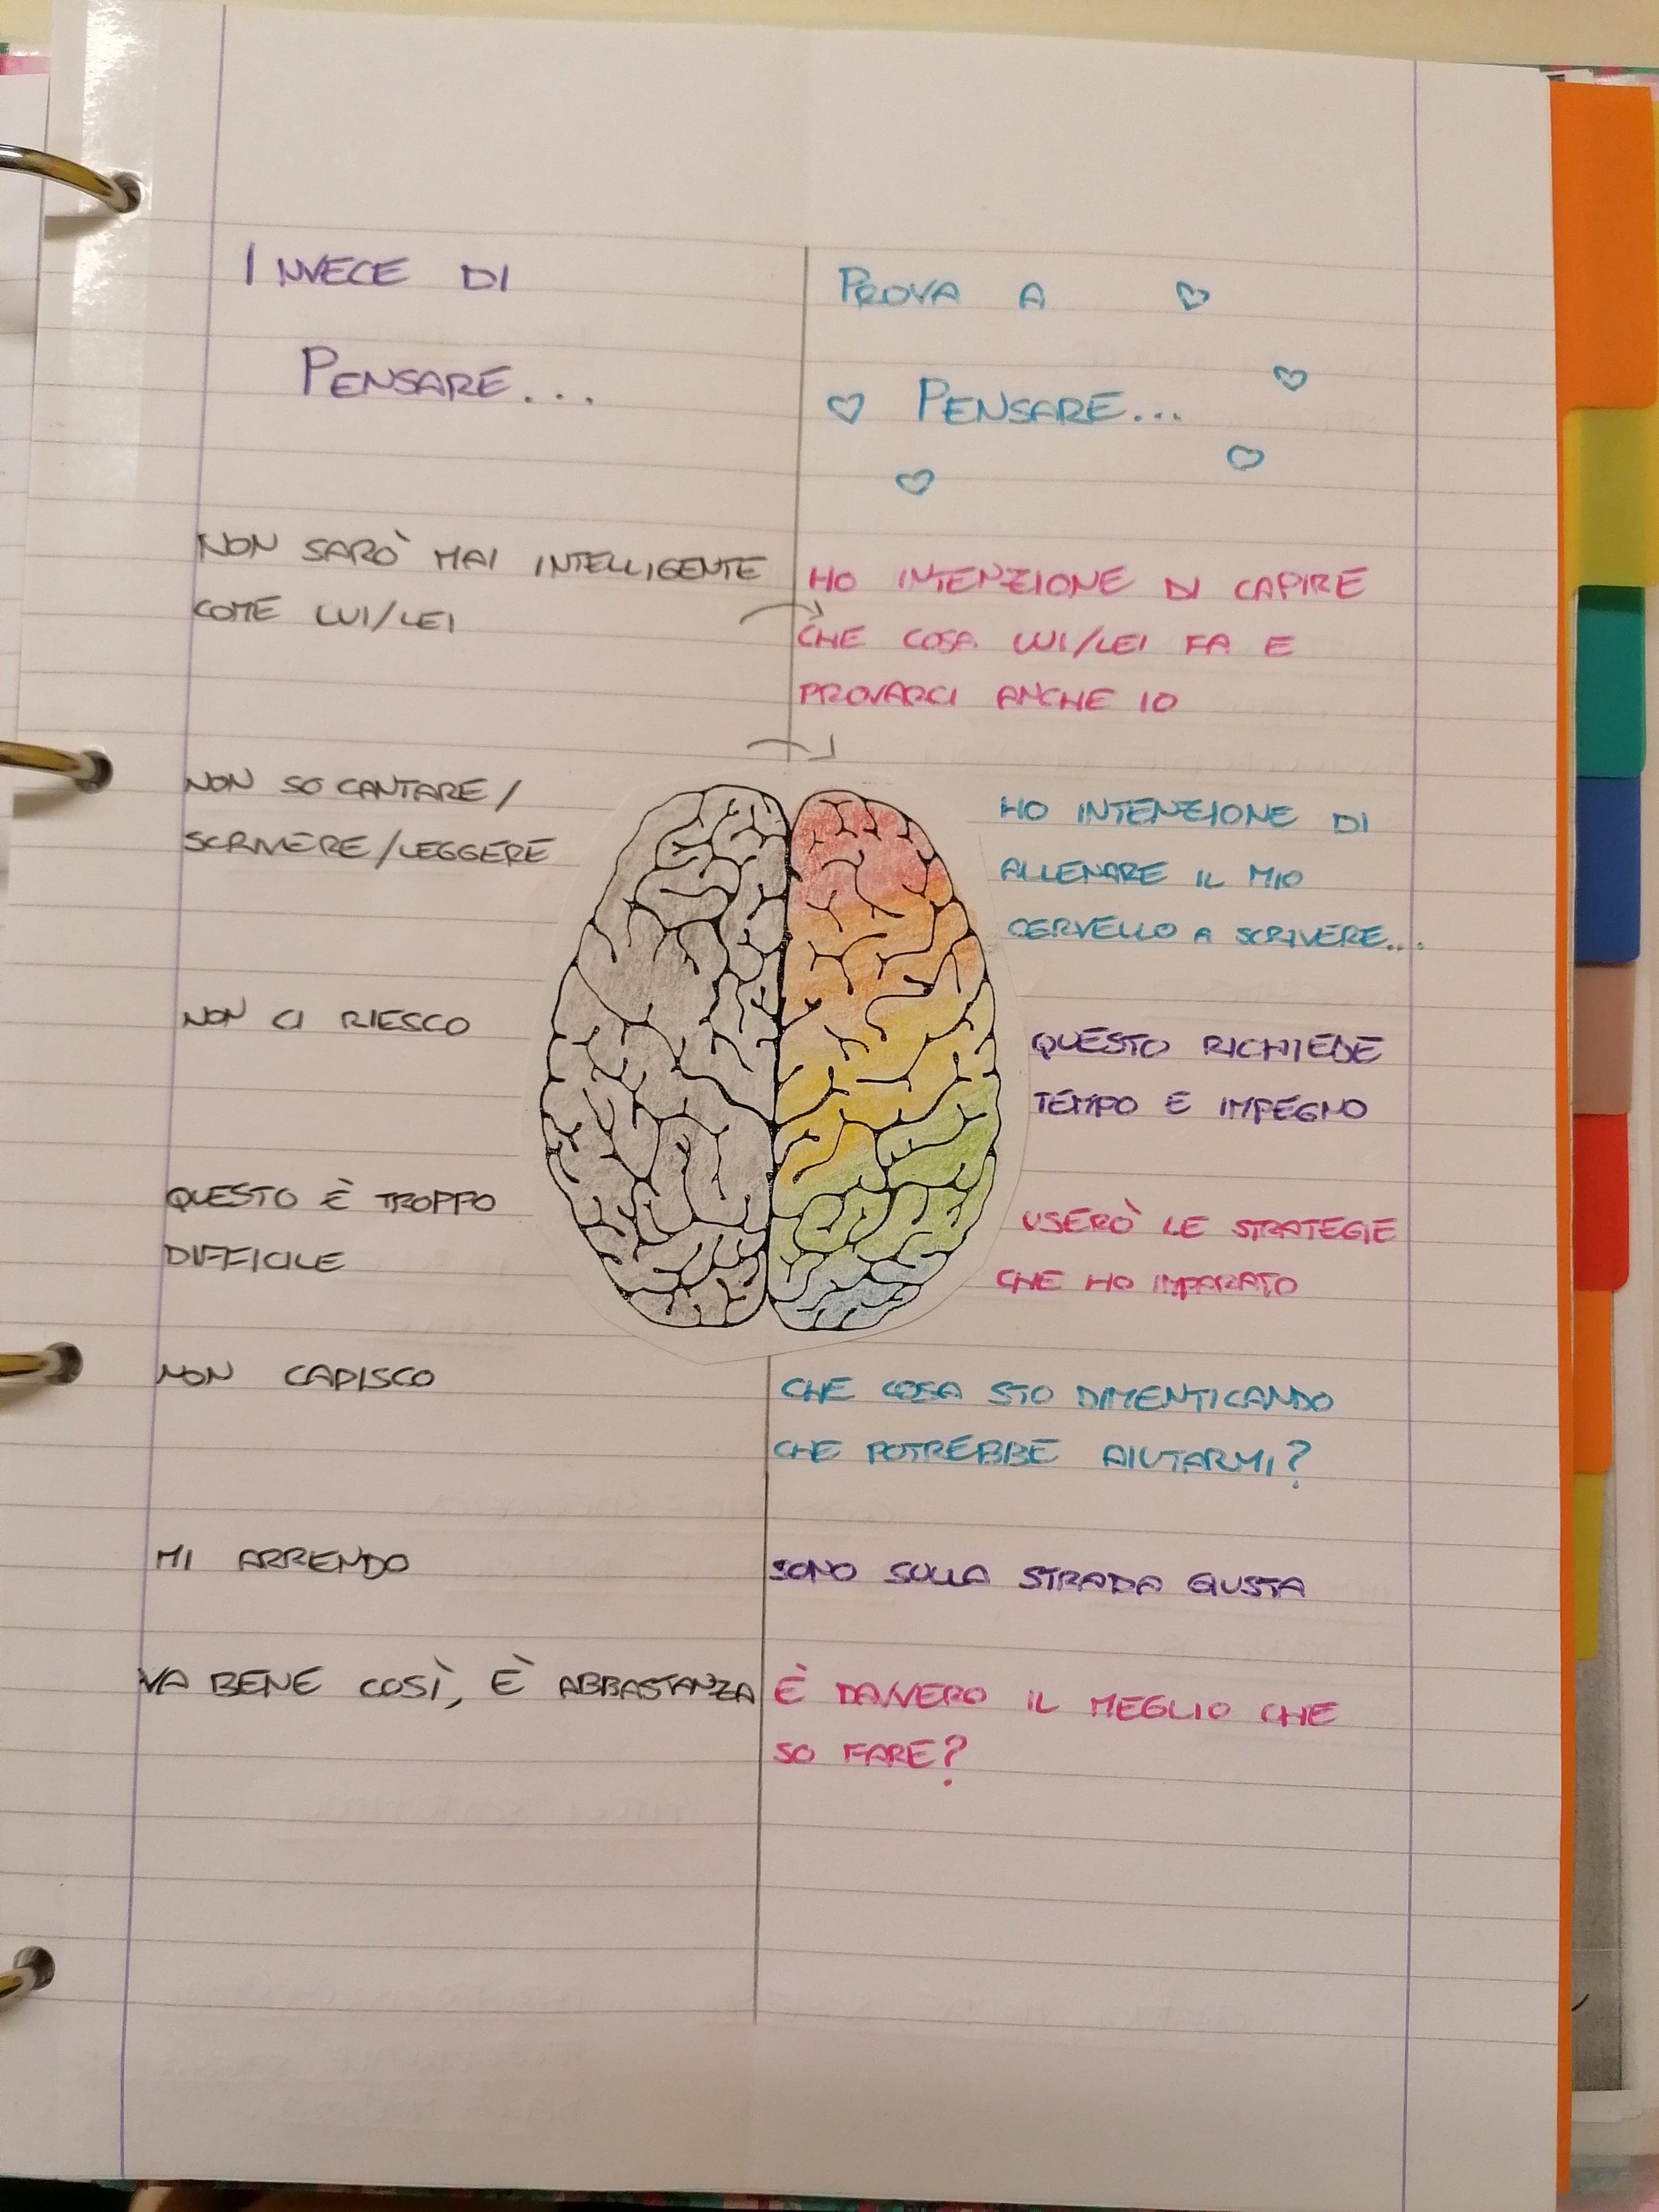 INVECE DI
PENSARE...
PROVA A
PENSARE...
NON SARÒ MAI INTELLIGENTE
COME LUI/LEI
HO INTENZIONE DI CAPIRE
CHE COSA LUI/LEI FA E
PROVARCI ANCHE IO
NON SO CANTARE/
SCRIVERE/LEGGERE
HO INTENZIONE DI
ALLENARE IL MIO
CERVELLO A SCRIVERE...
NON CI RIESCO
QUESTO RICHIEDE
TEMPO E IMPEGNO
QUESTO È TROPPO
DIFFICILE
USERÒ LE STRATEGIE
CHE HO IMPARATO
NON CAPISCO
CHE COSA STO DIMENTICANDO
CHE POTREBBE AIUTARMI?
MI ARRENDO
SONO SULLA STRADA GIUSTA
VA BENE COSÌ, È ABBASTANZA
È DAVVERO IL MEGLIO CHE
SO FARE?